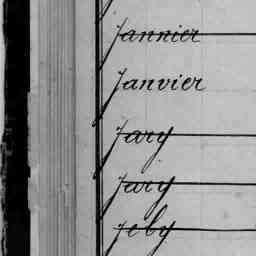 Jannier
Janvier
Jary
Jary
Jeby